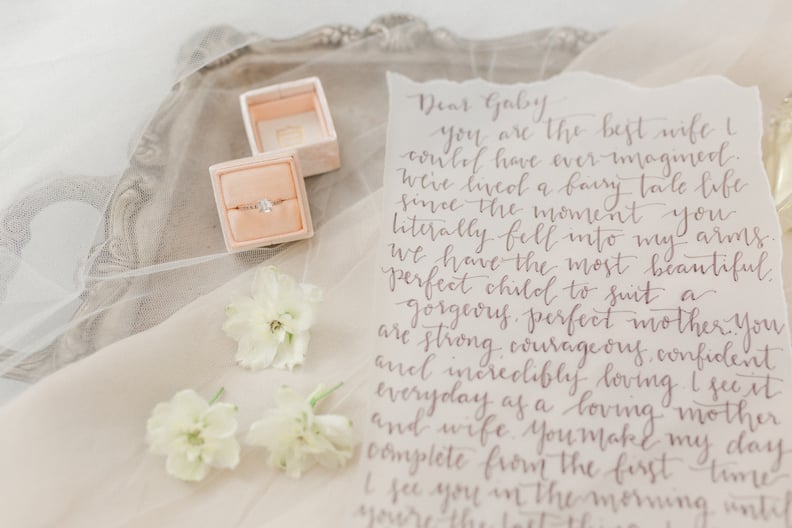 Dear Gaby
you are the best wife I
could have ever imagined.
We've lived a fairy tale life
since the moment you
literally fell into my arms.
We have the most beautiful,
perfect child to suit a
gorgeous, perfect mother. You
are strong, courageous, confident
and incredibly loving. I see it
everyday as a loving mother
and wife. You make my day
complete from the first time
I see you in the morning until
you're the last thing